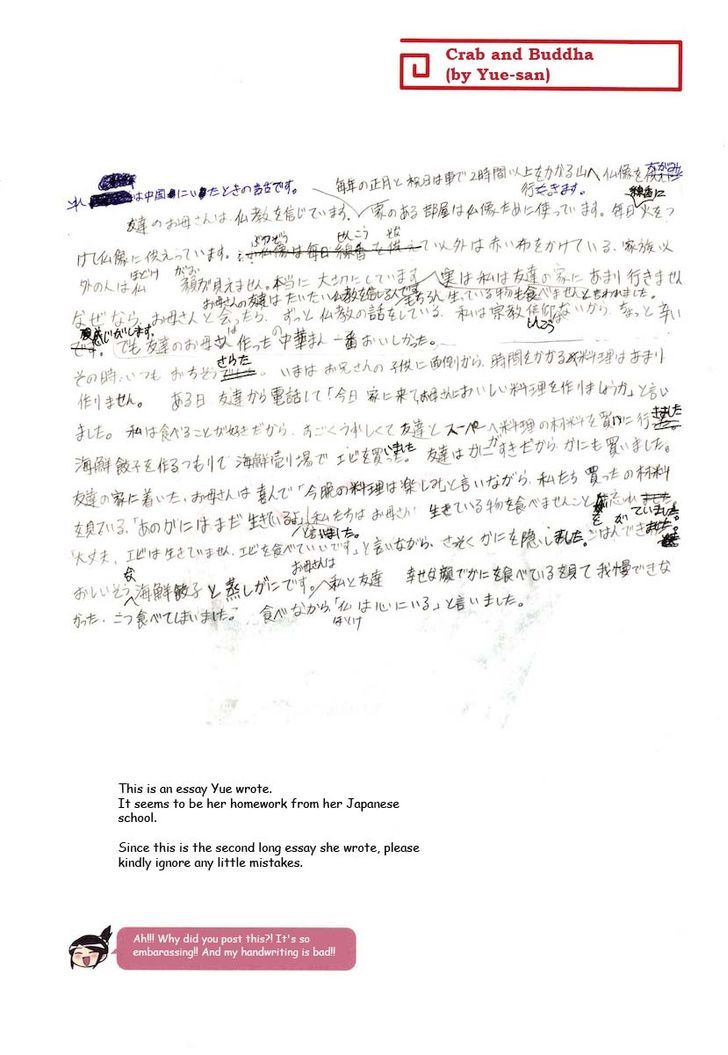 Crab and Buddha
(by Yue-san)
は中国にいたときの話です。
毎年の正月と祝日は車で2時間以上をかかる山へ仏像を
行きます。
線香に
友達のお母さんは、仏教を信じています。家のある部屋は仏像ために使っています。毎日火をつ
けて仏像に供えっています。
以外は赤い布をかけている、家族以
ほとけ がお
外の人は仏 顔が見えません。本当に大切にしています。実は私は友達の家にあまり行きません
お母さんの友達はだいたい仏教を信じる人です。
生ている物も食べませんと言われました。
なぜなら、お母さんと会ったら、ずっと仏教の話をしている、私は宗教信仰ないから、ちょっと辛い
感じがします。
しんこう
でも友達のお母さんは作ったの中華まん一番おいしかった。
その時、いつもおちそう
さらた
いまはお兄さんの子供に面倒から、時間をかかる料理はあまり
作りません。 ある日 友達から電話して「今日家に来てお母さんにおいしい料理を作りましょうか」と言い
ました。私は食べることが好きだから、すごくうれしくて友達とスーパーへ料理の材料を買いに行きました
海鮮餃子を作るつもりで海鮮売り場でエビを買いました。友達はかにがすきだからかにも買いました。
友達の家に着いた、お母さんは喜んで「今晩の料理は楽しむと言いながら、私たち買ったの材料
を見ている、「あのがにはまだ生きているよ」
と言いました。
私たちはお母さん生きている物を食べませんことを忘れていました。
「大丈夫、エビは生きていません、エビを食べていいです」と言いながら、さっそくかにを隠しました。ごはんができました。
お母さんは
おいしそうな海鮮餃子と蒸しがにです。私と友達 幸せな顔でかにを食べているを見て我慢できな
かった、二つ食べてしまいました。 食べながら「仏は心にいる」と言いました。
ほとけ
This is an essay Yue wrote.
It seems to be her homework from her Japanese
school.
Since this is the second long essay she wrote, please
kindly ignore any little mistakes.
Ah!!! Why did you post this?! It's so
embarassing!! And my handwriting is bad!!